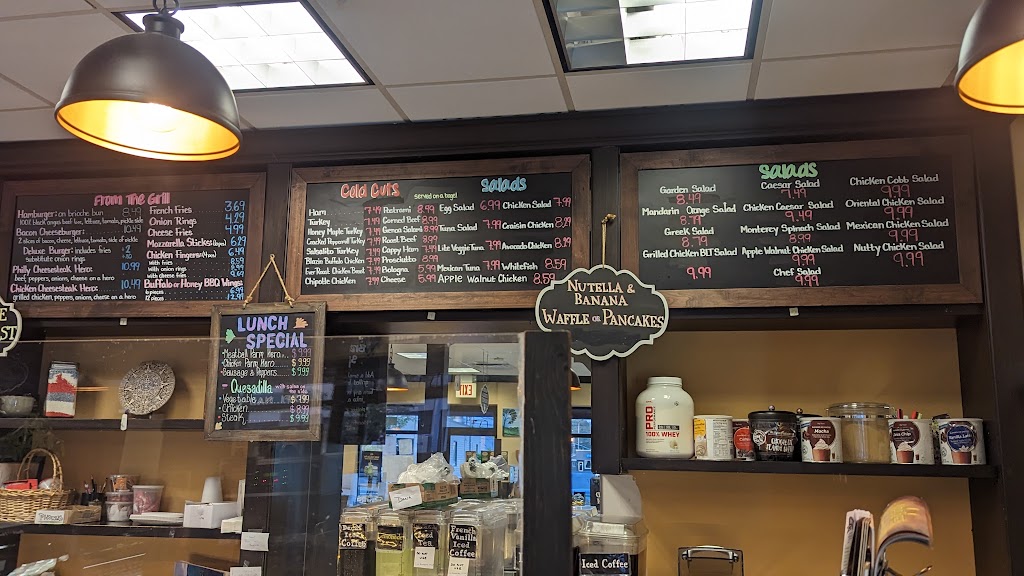 From The Grill
Hamburger: on brioche bun
100% black angus beef
Bacon Cheeseburger:
2 slices of bacon, cheese, lettuce, tomato, side of pickle
Deluxe: Includes fries
Substitute onion rings
Philly Cheesesteak Hero: 10.99
beef, peppers, onions, cheese on a hero
Chicken Cheesesteak Hero: 10.49
grilled chicken, peppers, onions, cheese on a hero
French Fries 3.69
Onion Rings 4.29
Cheese Fries 4.99
Mozzarella Sticks 6.29
Chicken Fingers
with fries
with onion rings
with cheese fries
Buffalo or Honey BBQ Wings
6 pieces
12 pieces
Cold Cuts
served on a bagel
Ham 7.49
Turkey 7.49
Honey Maple Turkey 7.49
Cracked Peppermill Turkey
Salsalito Turkey 7.49
Blazin Buffalo Chicken
EverRoast Chicken Breast
Chipotle Chicken 7.49
Pastrami 8.99
Corned Beef 8.99
Genoa Salami
Roast Beef 8.99
Cappy Ham
Prosciutto 8.99
Bologna 5.99
Cheese 6.99
Salads
Egg Salad 6.99
Tuna Salad 7.99
Lite Veggie Tuna 7.99
Mexican Tuna 7.99
Apple Walnut Chicken 8.59
Chicken Salad 7.99
Craisin Chicken
Avocado Chicken
Whitefish 8.59
Salads
Garden Salad
8.49
Mandarin Orange Salad
8.79
Greek Salad
8.79
Grilled Chicken BLT Salad
9.99
Caesar Salad
7.49
Chicken Caesar Salad
9.49
Monterey Spinach Salad
8.99
Apple Walnut Chicken Salad
9.99
Chef Salad
9.99
Chicken Cobb Salad
9.99
Oriental Chicken Salad
9.99
Mexican Chicken Salad
9.99
Nutty Chicken Salad
9.99
NUTELLA &
BANANA
WAFFLE OR PANCAKES
LUNCH
SPECIAL
Meatball Parm Hero $9.99
Chicken Parm Hero $9.99
Sausage & Peppers $9.99
Quesadilla with salsa on the side
Vegetable $7.99
Chicken $8.99
Steak $9.99
EXIT
PRO
100% WHEY
Mocha
Iced
Coffee
Iced
Tea
French
Vanilla
Iced
Coffee
Iced Coffee